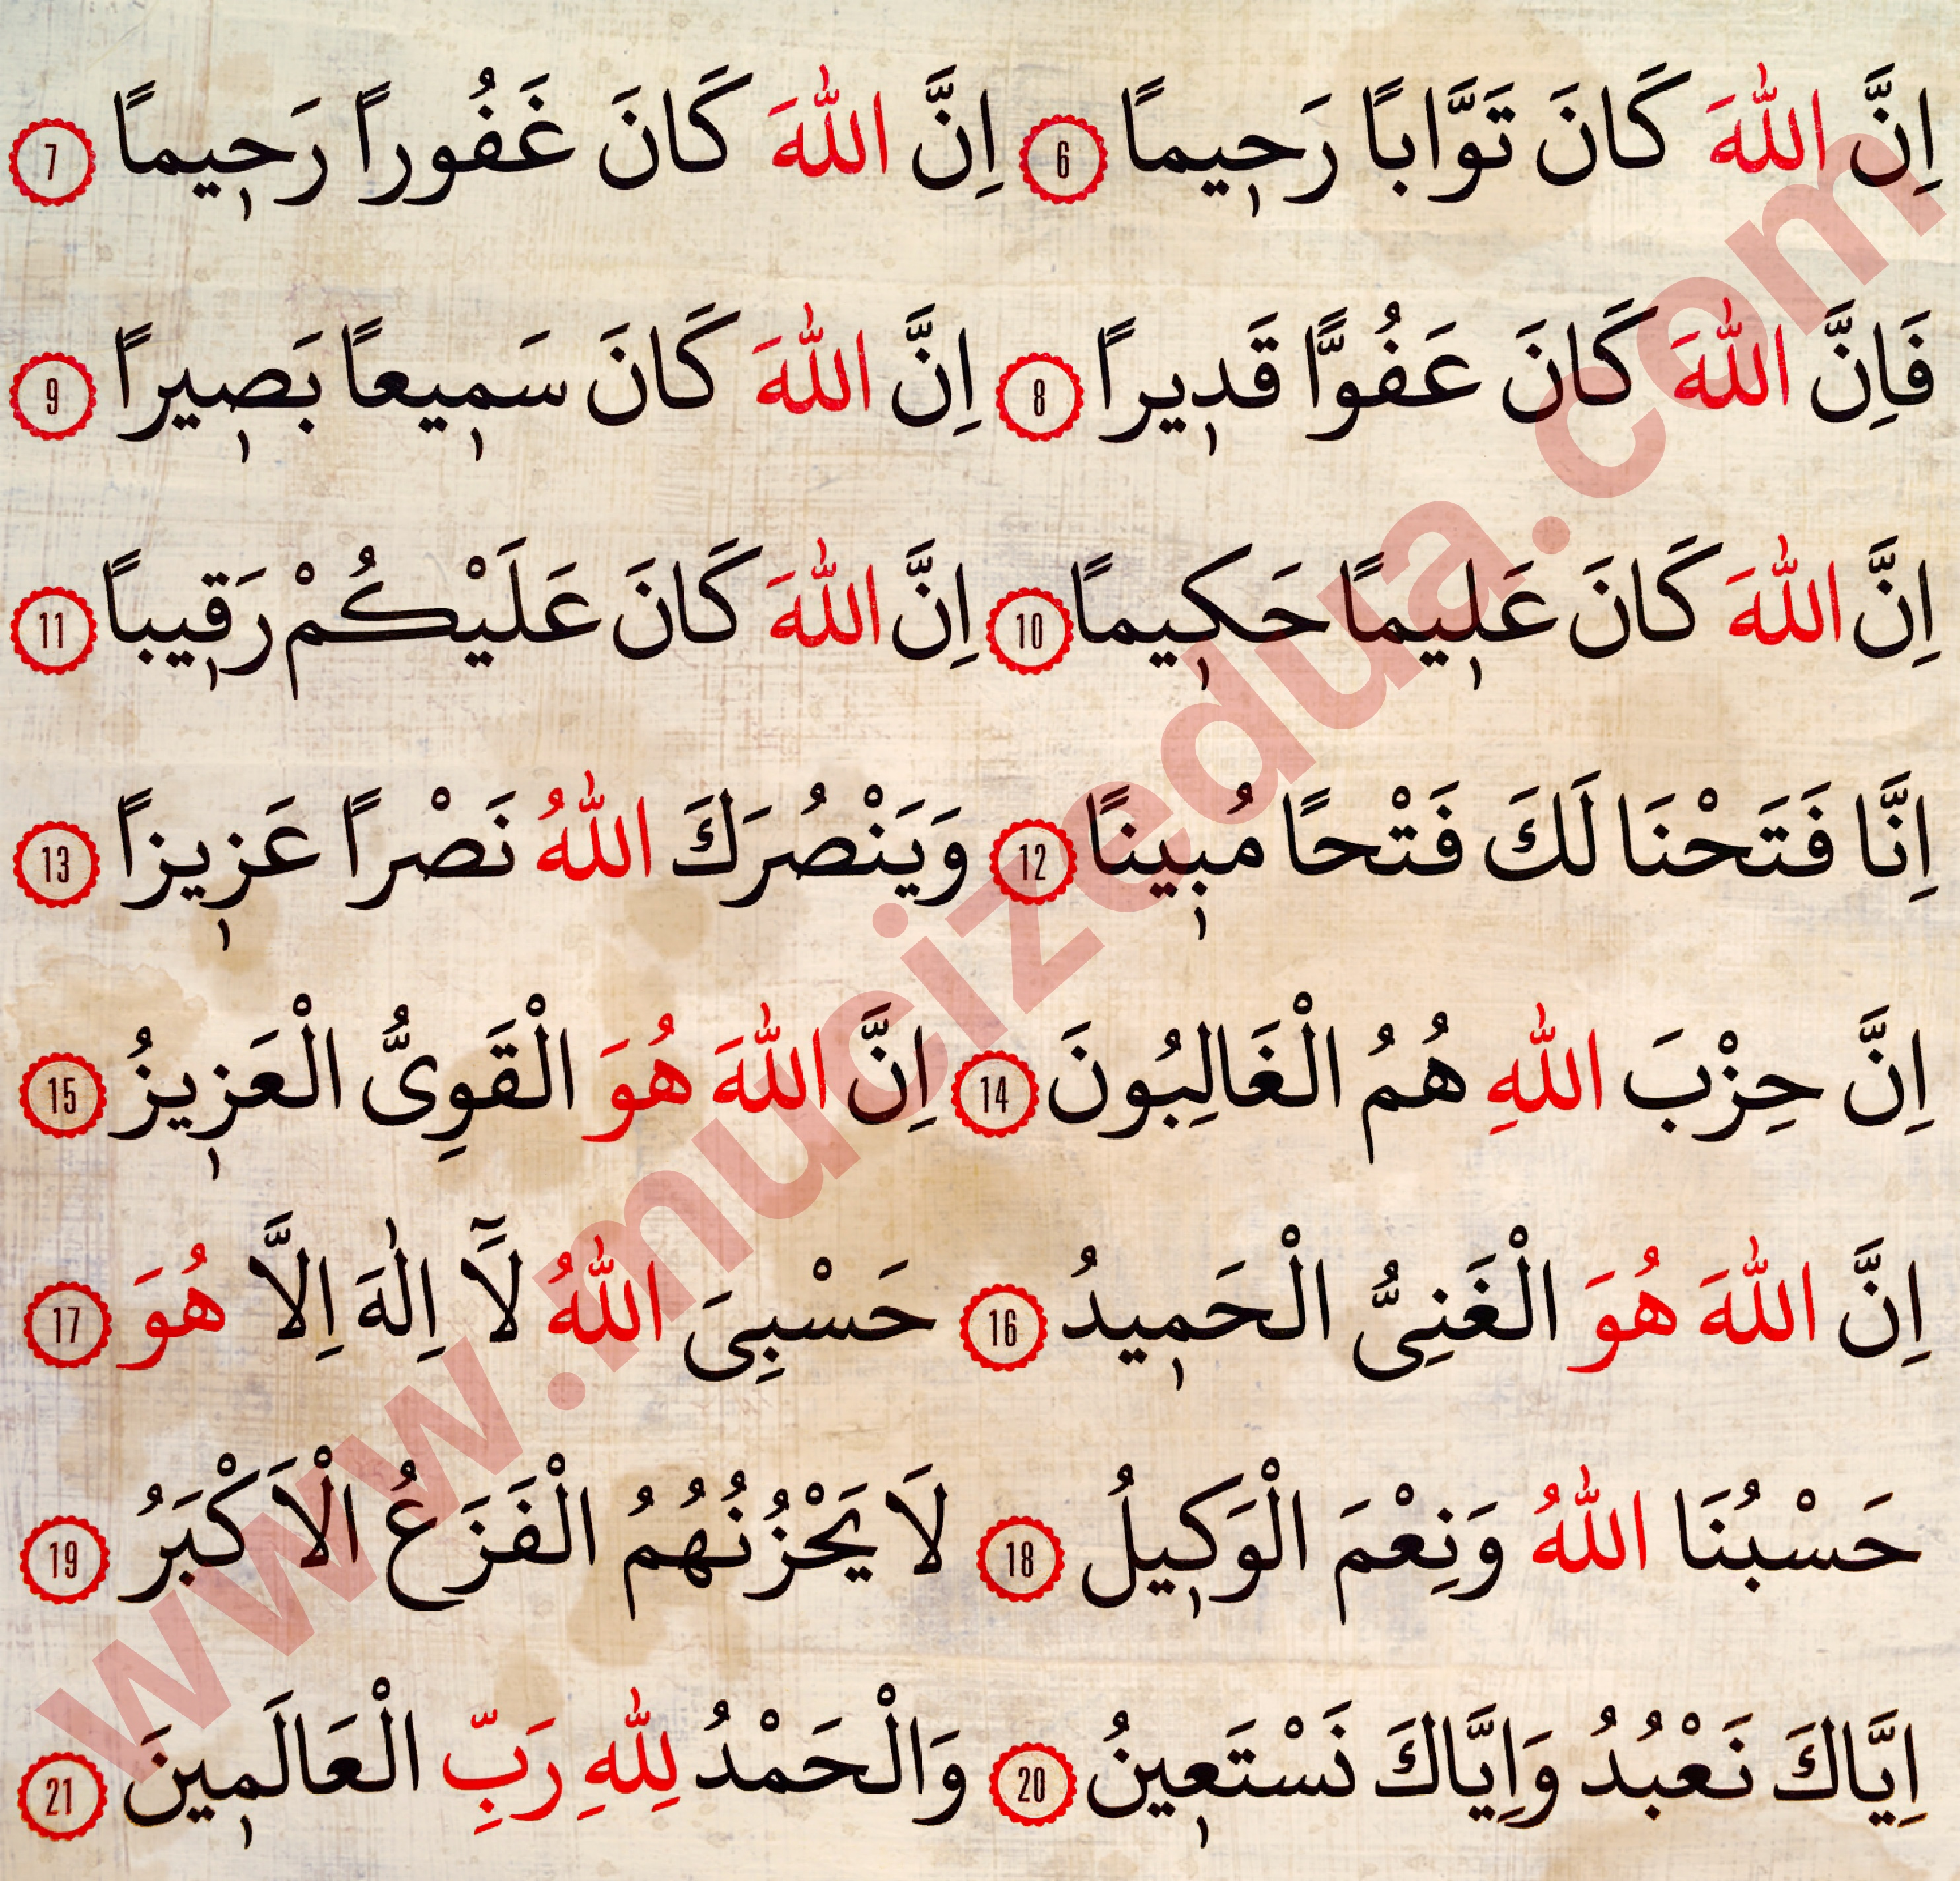 اِنَّ اللّٰهَ كَانَ تَوَّاباً رَح۪يماً 6 اِنَّ اللّٰهَ كَانَ غَفُوراً رَح۪يماً 7
فَاِنَّ اللّٰهَ كَانَ عَفُواًّ قَد۪يراً 8 اِنَّ اللّٰهَ كَانَ سَم۪يعاً بَص۪يراً 9
اِنَّ اللّٰهَ كَانَ عَل۪يمًا حَك۪يمًا 10 اِنَّ اللّٰهَ كَانَ عَلَيْكُمْ رَق۪يباً 11
اِنَّا فَتَحْنَا لَكَ فَتْحًا مُب۪ينًا 12 وَيَنْصُرَكَ اللّٰهُ نَصْراً عَز۪يزاً 13
اِنَّ حِزْبَ اللّٰهِ هُمُ الْغَالِبُونَ 14 اِنَّ اللّٰهَ هُوَ الْقَوِىُّ الْعَز۪يزُ 15
اِنَّ اللّٰهَ هُوَ الْغَنِىُّ الْحَم۪يدُ 16 حَسْبِىَ اللّٰهُ لَٓا اِلٰهَ اِلَّا هُوَ 17
حَسْبُنَا اللّٰهُ وَنِعْمَ الْوَك۪يلُ 18 لَا يَحْزُنُهُمُ الْفَزَعُ الْاَكْبَرُ 19
اِيَّاكَ نَعْبُدُ وَاِيَّاكَ نَسْتَع۪ينُ 20 وَالْحَمْدُ لِلّٰهِ رَبِّ الْعَالَم۪ينَ 21
www.mucizedua.com